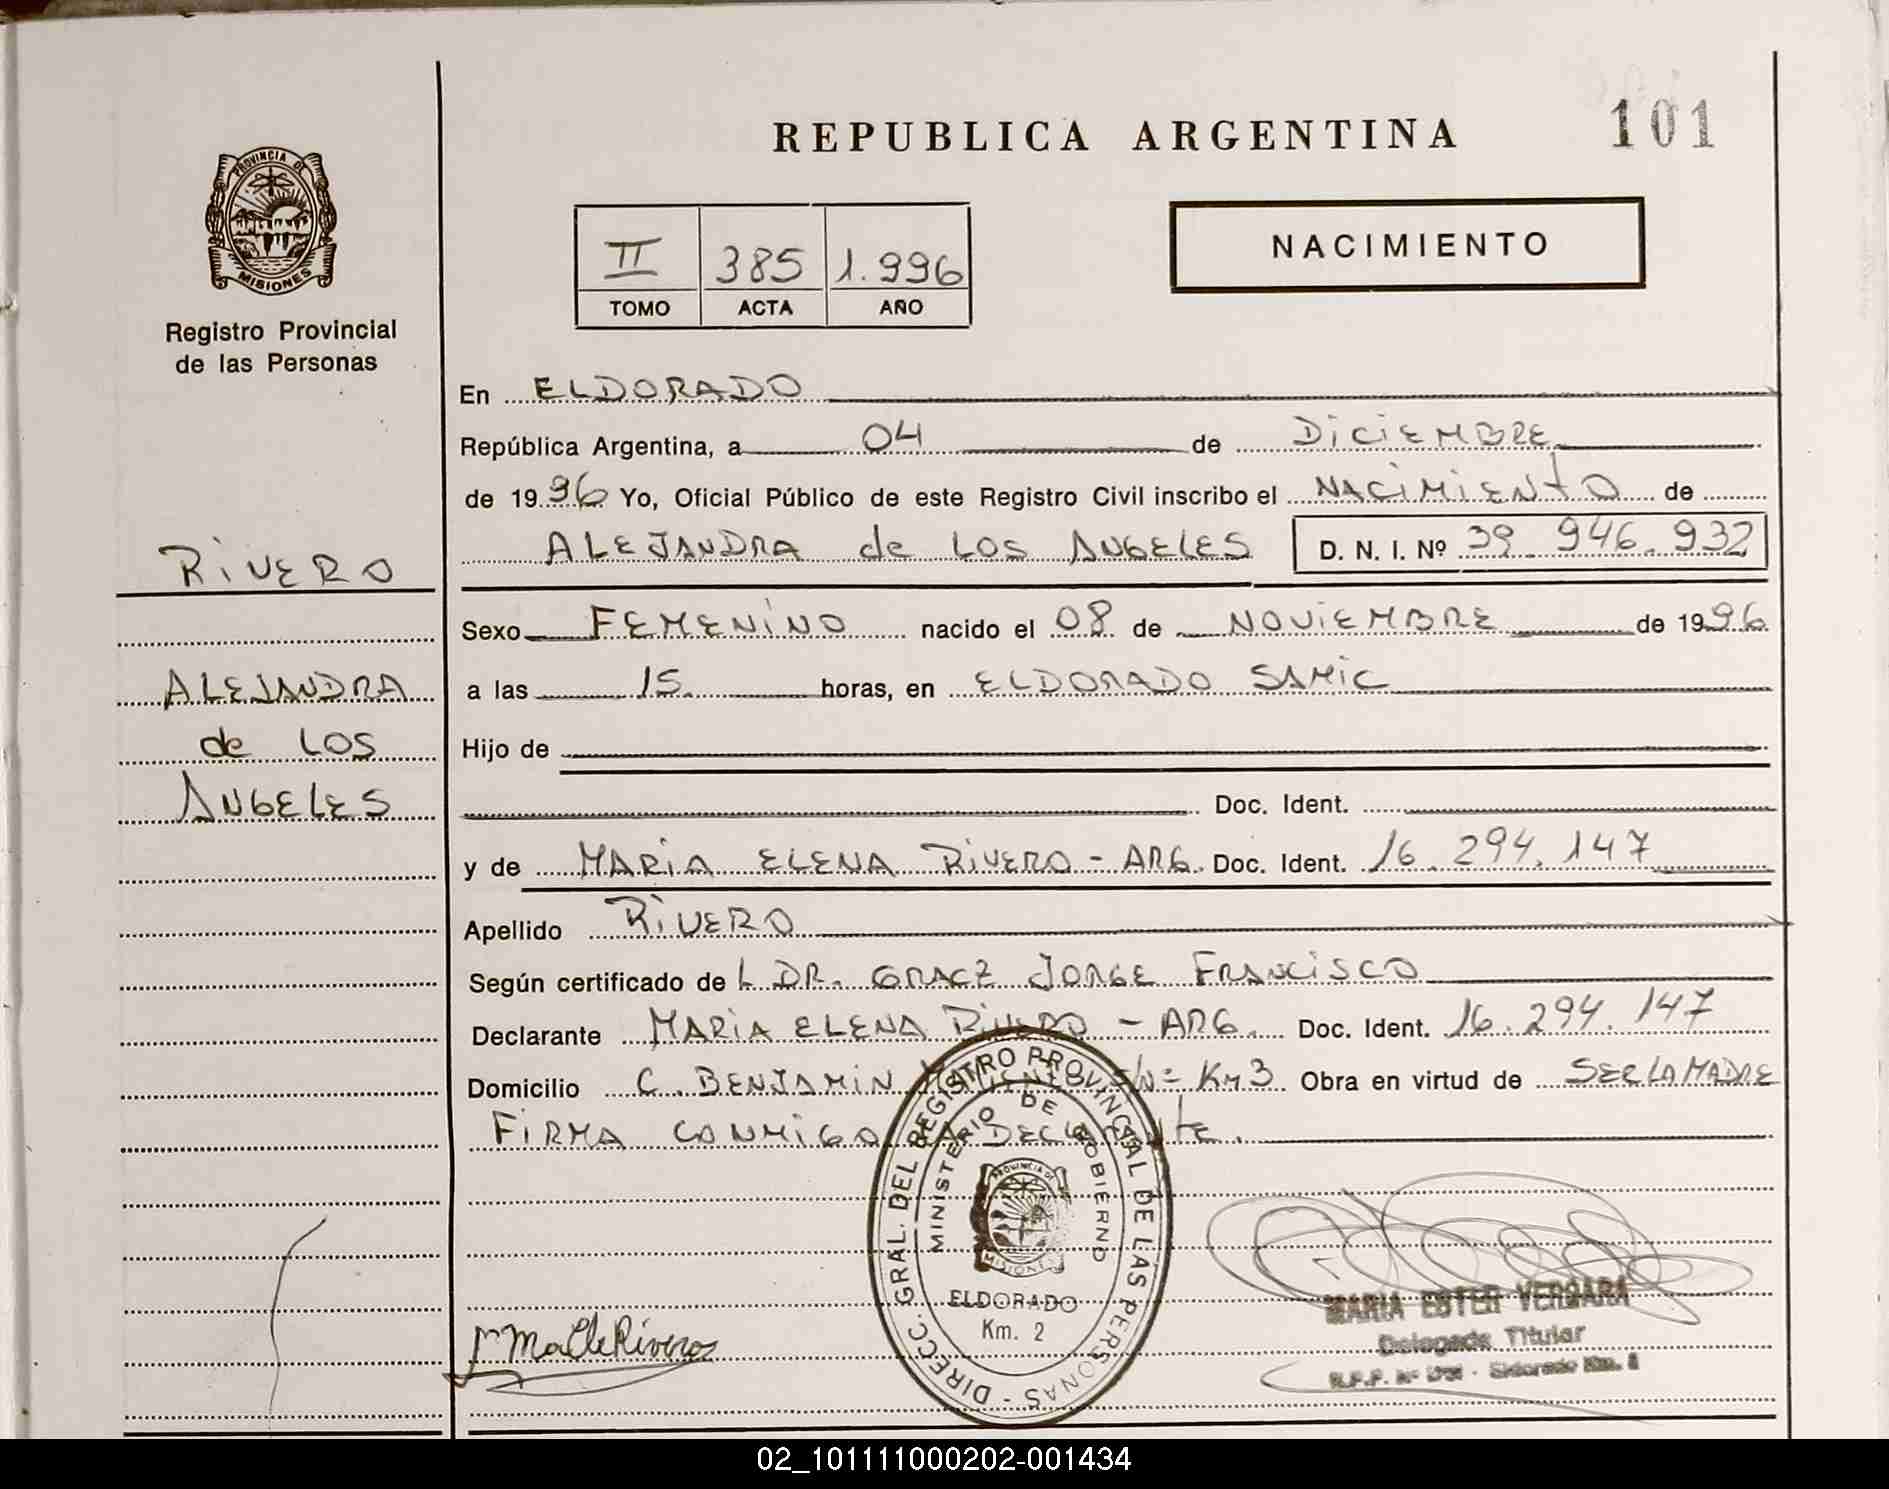 REPUBLICA ARGENTINA
101
PROVINCIA DE
MISIONES
Registro Provincial
de las Personas
II 385 1.996
TOMO ACTA AÑO
NACIMIENTO
En ELDORADO
República Argentina, a 04 de DiCiEMBRE
de 1996 Yo, Oficial Público de este Registro Civil inscribo el NACIMIENTO de
ALEJANDRA de LOS ANGELES D. N. I. Nº 39.946.932
RIVERO
ALEJANDRA
de LOS
ANGELES
Sexo FEMENINO nacido el 08 de NOVIEMBRE de 1996
a las 15 horas, en ELDORADO SAMIC
Hijo de
Doc. Ident.
y de MARIA ELENA RIVERO - ARG. Doc. Ident. 16.294.147
Apellido RIVERO
Según certificado de L DR. GRACZ JORGE FRANCISCO
Declarante MARIA ELENA RIVERO - ARG. Doc. Ident. 16.294.147
Domicilio C. BENJAMIN S/Nº Km 3 Obra en virtud de SER LA MADRE
FIRMA CONMIGO LA DECLARANTE.
DIRECC. GRAL. DEL REGISTRO PROVINCIAL DE LAS PERSONAS -
MINISTERIO DE GOBIERNO
PROVINCIA DE
MISIONES
ELDORADO
Km. 2
MARIA ESTER VERGARA
Delegada Titular
Eldorado Km.
02_101111000202-001434